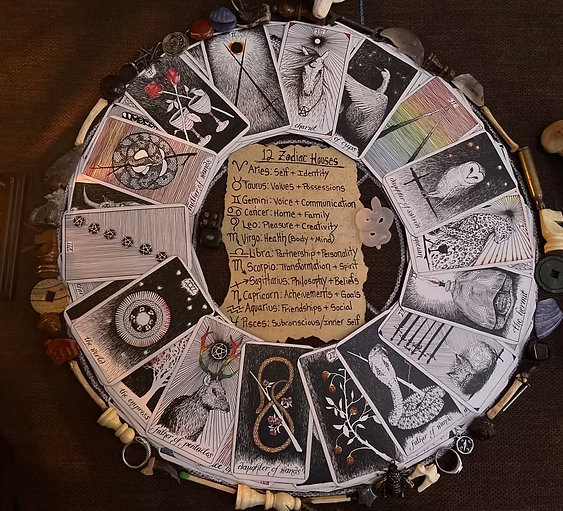 12 Zodiac Houses
♈ Aries: Self + Identity
♉ Taurus: Values + Possessions
♊ Gemini: Voice + Communication
♋ Cancer: Home + Family
♌ Leo: Pleasure + Creativity
♍ Virgo: Health (Body + Mind)
♎ Libra: Partnership + Personality
♏ Scorpio: Transformation + Spirit
♐ Sagittarius: Philosophy + Beliefs
♑ Capricorn: Acheivements + Goals
♒ Aquarius: Friendships + Social
Pisces: Subconscious/Inner Self
chariot
of cups
the hermit
daughter of wands
father of pentacles
the empress